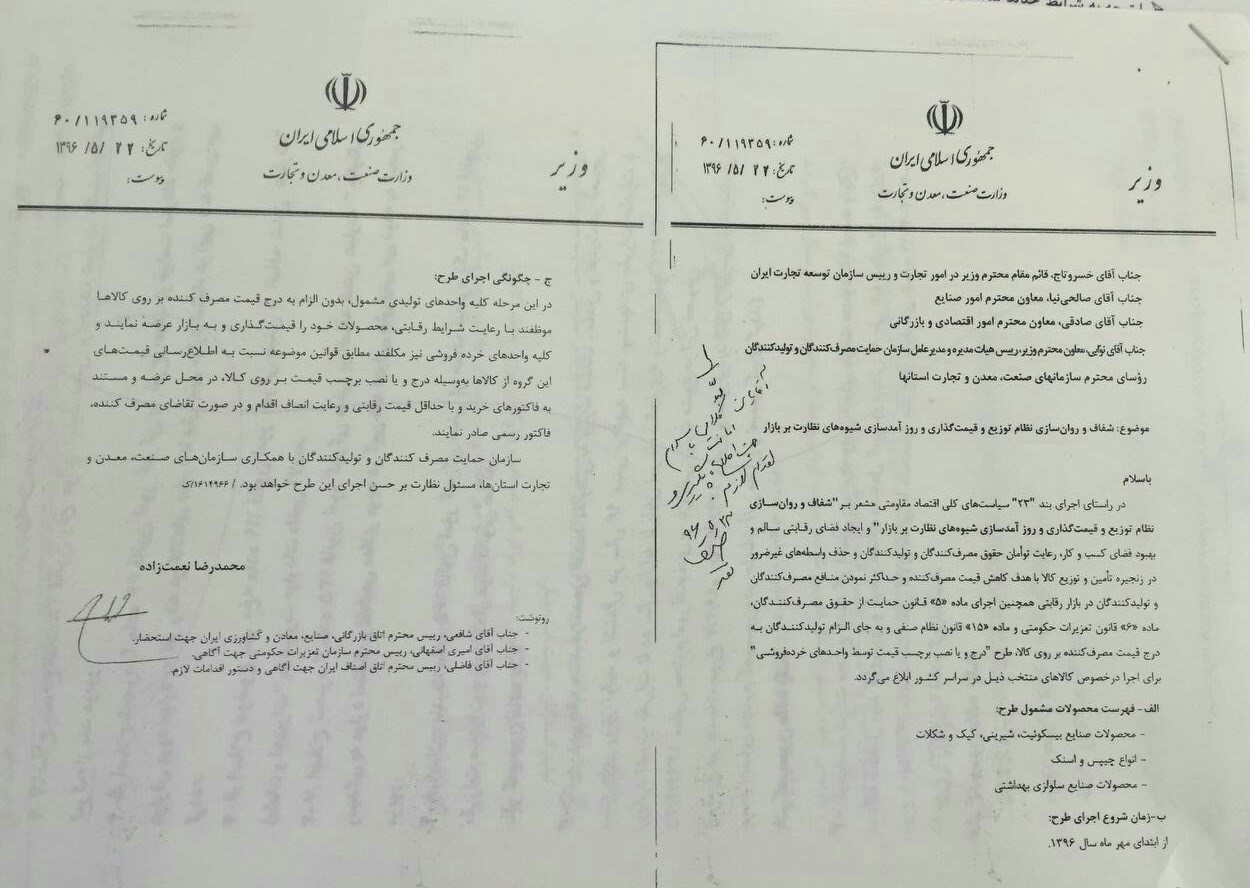 جمهوری اسلامی ایران
وزارت صنعت، معدن و تجارت
وزیر
شماره: ۶۰/۱۱۹۳۵۹
تاریخ: ۱۳۹۶/۵/۲۲
پیوست:
جناب آقای خسروتاج، قائم مقام محترم وزیر در امور تجارت و رییس سازمان توسعه تجارت ایران
جناب آقای صالحی‌نیا، معاون محترم امور صنایع
جناب آقای صادقی، معاون محترم امور اقتصادی و بازرگانی
جناب آقای نوابی، معاون محترم وزیر، رییس هیات مدیره و مدیرعامل سازمان حمایت مصرف‌کنندگان و تولیدکنندگان
رؤسای محترم سازمانهای صنعت، معدن و تجارت استانها
موضوع: شفاف و روان‌سازی نظام توزیع و قیمت‌گذاری و روز آمدسازی شیوه‌های نظارت بر بازار
باسلام
در راستای اجرای بند "۲۳" سیاست‌های کلی اقتصاد مقاومتی مشعر بـر "شفاف و روان‌سـازی
نظام توزیع و قیمت‌گذاری و روز آمدسازی شیوه‌های نظارت بر بازار" و ایجاد فضای رقابتی سالم و
بهبود فضای کسب و کار، رعایت توأمان حقوق مصرف‌کنندگان و تولیدکنندگان و حذف واسطه‌های غیرضرور
در زنجیره تأمین و توزیع کالا با هدف کاهش قیمت مصرف‌کننده و حداکثر نمودن منافع مصرف‌کنندگان
و تولیدکنندگان در بازار رقابتی همچنین اجرای ماده «۵» قانون حمایت از حقوق مصرف‌کنندگان،
ماده «۶» قانون تعزیرات حکومتی و ماده «۱۵» قانون نظام صنفی و به جای الـزام تولیدکننـدگان بـه
درج قیمت مصرف‌کننده بر روی کالا، طرح "درج و یا نصب برچسب قیمت توسط واحدهای خرده‌فروشی"
برای اجرا درخصوص کالاهای منتخب ذیـل در سراسر کشور ابلاغ می‌گردد.
الف- فهرست محصولات مشمول طرح:
- محصولات صنایع بیسکوئیت، شیرینی، کیک و شکلات
- انواع چیپس و اسنک
- محصولات صنایع سلولزی بهداشتی
ب-زمان شروع اجرای طرح:
از ابتدای مهر ماه سال ۱۳۹۶.
جمهوری اسلامی ایران
وزارت صنعت، معدن و تجارت
وزیر
شماره: ۶۰/۱۱۹۳۵۹
تاریخ: ۱۳۹۶/۵/۲۲
پیوست:
ج - چگونگی اجرای طرح:
در این مرحله کلیه واحدهای تولیدی مشمول، بدون الزام به درج قیمت مصرف کننده بر روی کالاهـا
موظفند بـا رعایـت شرایط رقـابتی، محصولات خـود را قیمت‌گـذاری و بـه بـازار عرضـه نماینـد و
کلیه واحدهای خرده فروشی نیز مکلفند مطابق قوانین موضوعه نسبت به اطلاع‌رسانی قیمت‌های
این گروه از کالاها به‌وسیله درج و یا نصب برچسب قیمت بـر روی کـالا، در محـل عرضـه و مستند
به فاکتورهای خرید و با حداقل قیمت رقابتی و رعایت انصاف اقدام و در صورت تقاضای مصرف کننده،
فاکتور رسمی صادر نمایند.
سازمان حمایت مصرف کنندگان و تولیدکنندگان با همکاری سازمان‌های صـنعت، معـدن و
تجارت استان‌ها، مسئول نظارت بر حسن اجرای این طرح خواهد بود. / ۱۶۱۴۹۶۶/ک
محمدرضا نعمت‌زاده
رونوشت:
- جناب آقای شافعی، رییس محترم اتاق بازرگانی، صنایع، معادن و کشاورزی ایران جهت استحضار.
- جناب آقای امیری اصفهانی، رییس محترم سازمان تعزیرات حکومتی جهت آگاهی.
- جناب آقای فاضلی، رییس محترم اتاق اصناف ایران جهت آگاهی و دستور اقدامات لازم.